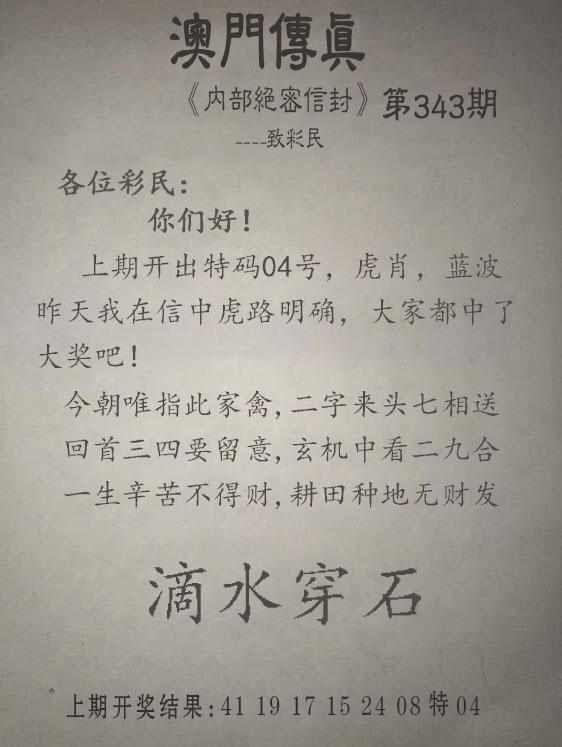 澳門傳真
《内部絕密信封》第343期
----致彩民
各位彩民：
你们好！
上期开出特码04号，虎肖，蓝波
昨天我在信中虎路明确，大家都中了
大奖吧！
今朝唯指此家禽,二字来头七相送
回首三四要留意,玄机中看二九合
一生辛苦不得财,耕田种地无财发
滴水穿石
上期开奖结果:41 19 17 15 24 08特04